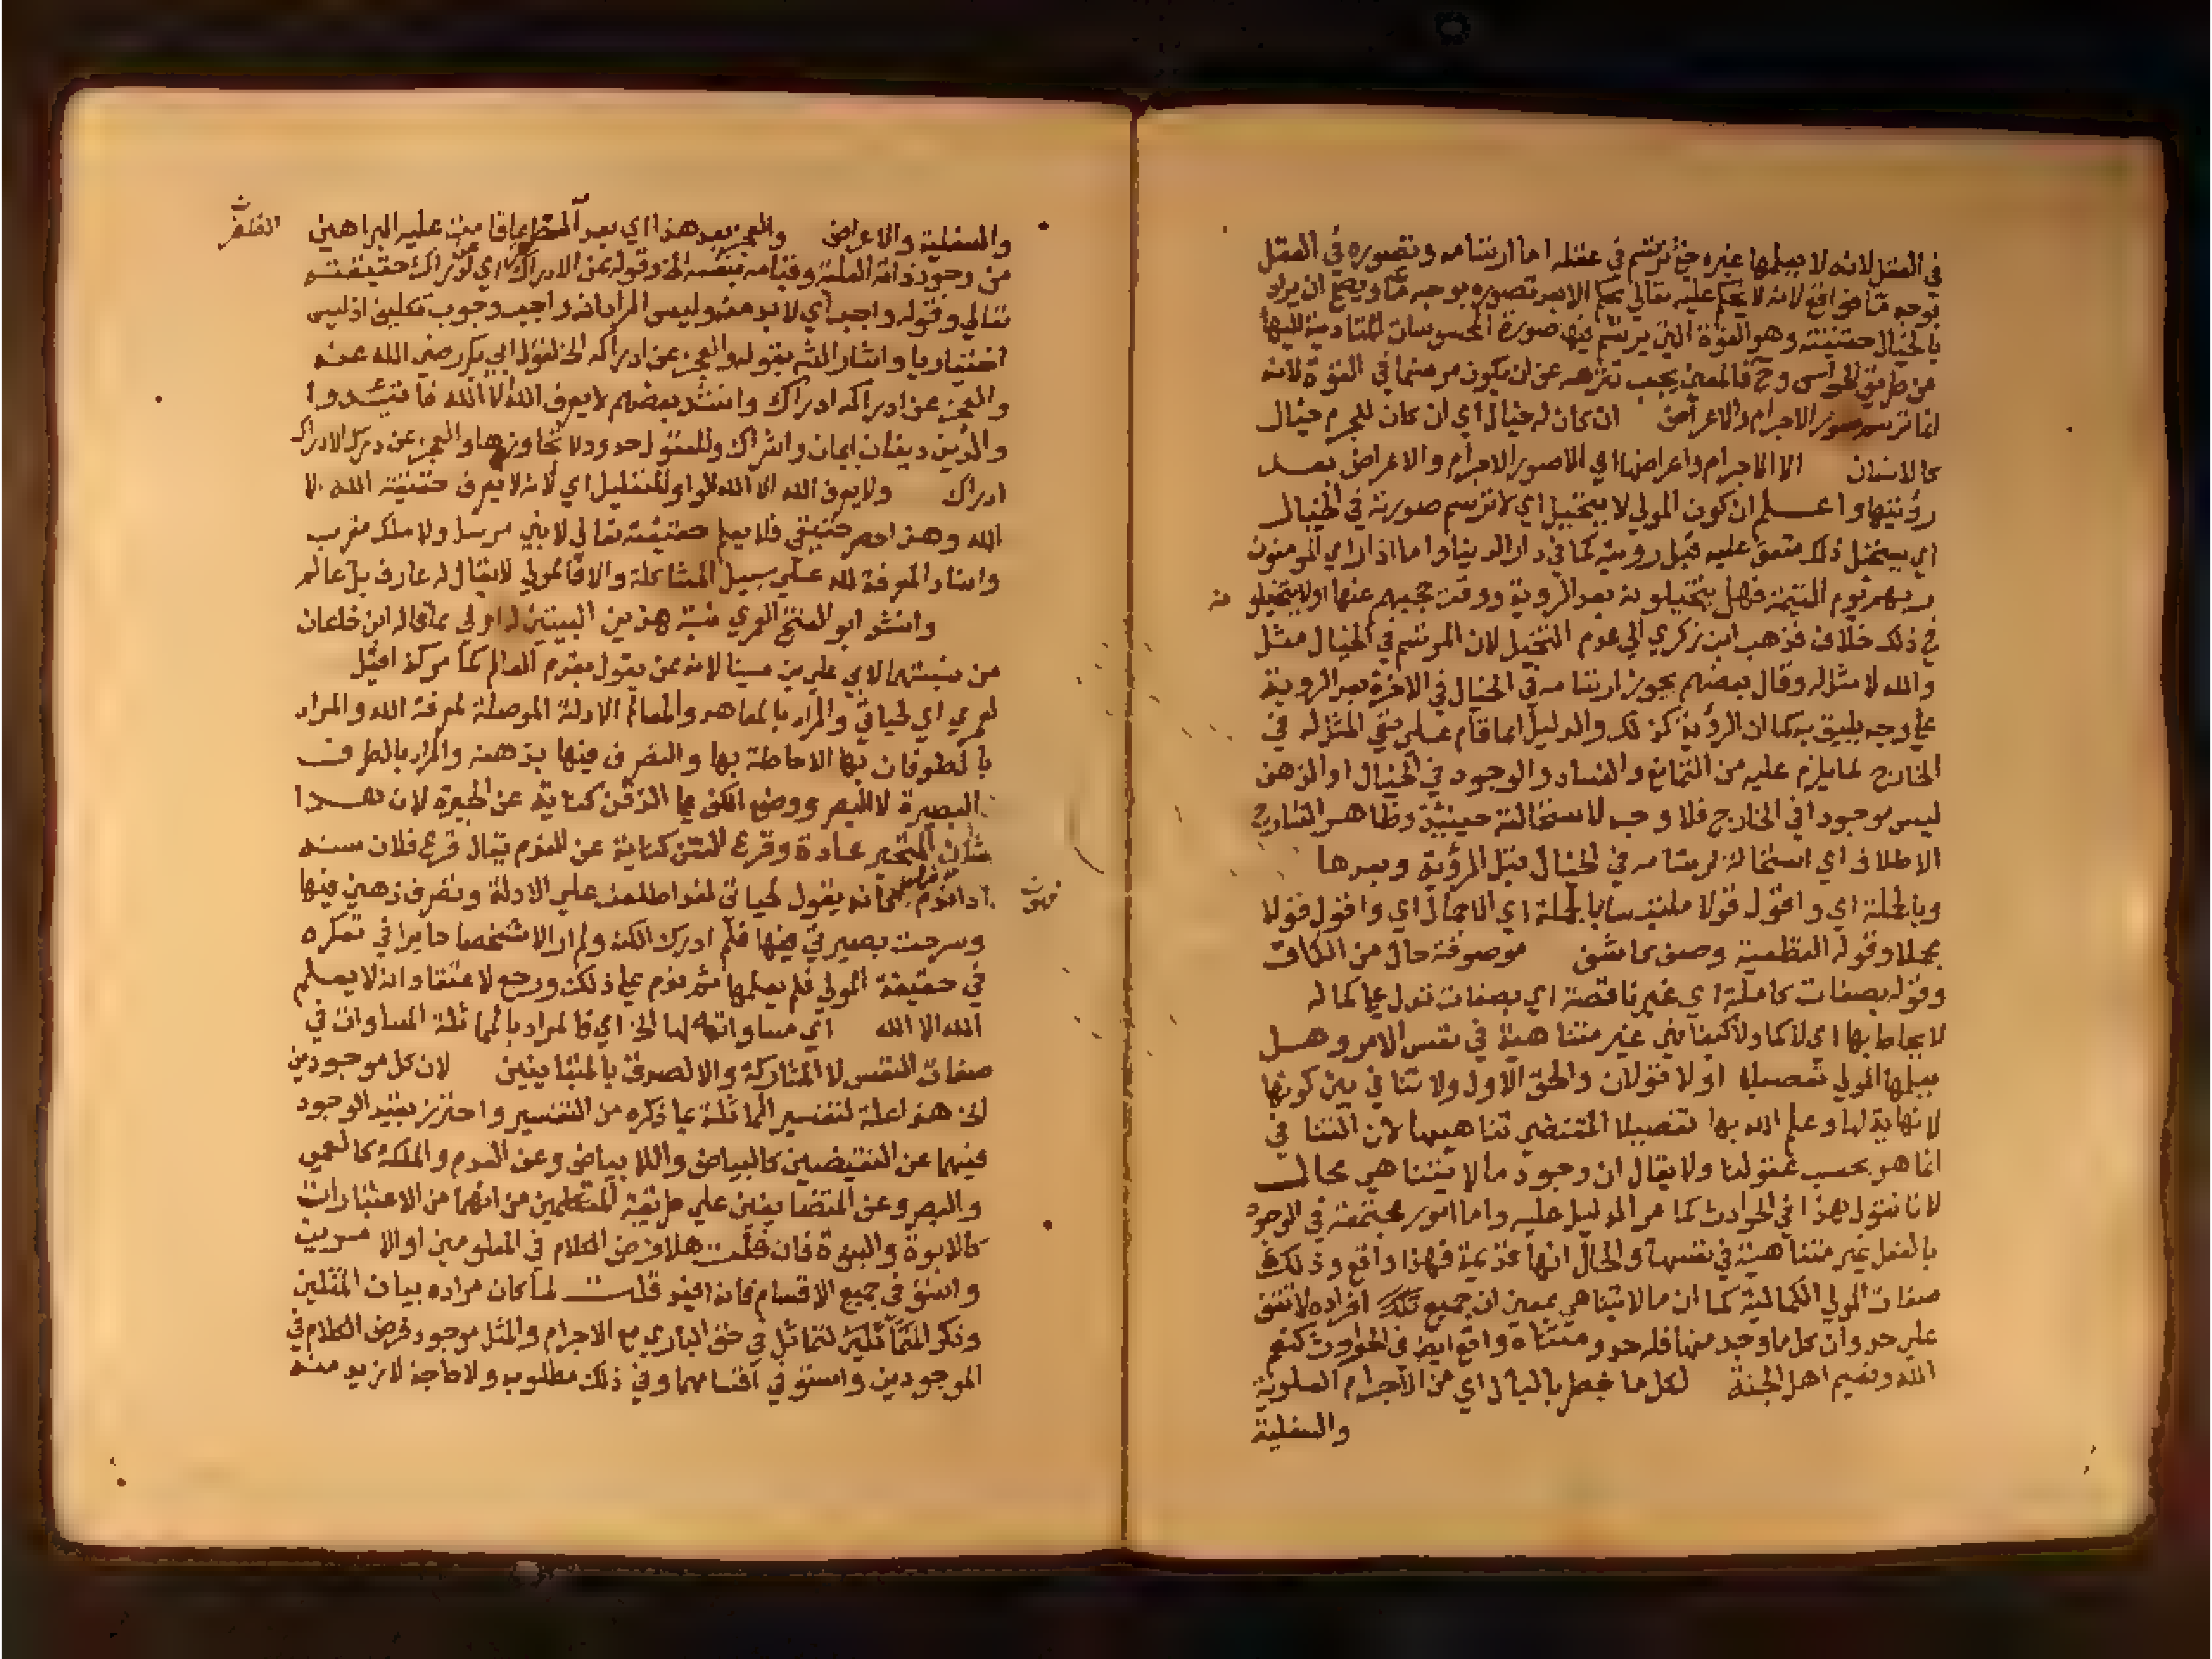 في العقل لانه لا يعلمها غيره حتي ترتسم في عقله اما ارتسامه وتصوره في العقل
بوجه ما فواقع لانه لا يحكم عليه تعالي بحكم الا بعد تصوره بوجه ما ويصح ان يراد
بالخيال حقيقته وهو القوة التي يرتسم فيها صورة المحسوسات المتادية اليها
من طريق الحواس وح فالمعني يجب تنزهه عن ان يكون مرتسما في القوة لانه
انما ترتسم صور الاجرام والاعراض ان كان له خيال اي ان كان للجرم خيال
كالانسان الا الاجرام واعراضها اي الا صور الاجرام والاعراض بعد
رؤيتها واعلم ان كون المولي لا يتخيل اي لا ترتسم صورته في الخيال
اي يتخيل ذلك متفق عليه قبل رويته كما في دار الدنيا واما اذا راي المومنون
ربهم يوم القيمة فهل يتخيلونه بعد الروية ووقت حجبهم عنها اولا يتخيلونه
في ذلك خلاف فذهب ابن زكري الي عدم التخيل لان المرتسم في الخيال مثل
والله لا مثل له وقال بعضهم يجوز ارتسامه في الخيال في الاخرة بعد الروية
علي وجه يليق به كما ان الرؤية كذلك والدليل انما قام علي نفي المثل له في
الخارج لما يلزم عليه من التمانع والفساد والوجود في الخيال او الذهن
ليس موجودا في الخارج فلا وجه لاستحالته حينئذ وظاهر الشارح
الاطلاق اي استحالة ارتسامه في الخيال قبل الرؤية وبعدها
وبالجملة اي واقول قولا ملتبسا بالجملة اي الاجمال اي واقول قولا
مجملا وقوله العظمية وصف كاشف موصوفة حال من الذات
وقوله بصفات كاملة اي غير ناقصة اي بصفات تدل علي كماله
لا يحاط بها اي لا كما ولا كيفا فهي غير متناهية في نفس الامر وهل
يعلمها المولي تفصيلا اولا قولان والحق الاول ولا تنافي بين كونها
لا نهاية لها وعلم الله بها تفصيلا المقتضي تناهيها لان التنافي
انما هو بحسب عقولنا ولا يقال ان وجود ما لا يتناهي محال
لانا نقول هذا في الحوادث كما مر الدليل عليه واما امور مجتمعة في الوجود
بالفعل غير متناهية في نفسها والحال انها قديمة فهذا واقع وذلك
صفات المولي الكمالية كما ان ما لا يتناهي بمعني ان جميع تلك افراده لا تقف
علي حد وان كل ما وجد منها فله حد ومتناه واقع ايضا في الحوادث كنعم
الله ونعيم اهل الجنة لكل ما خطر بالبال اي من الاجرام العلوية
والسفلية
والسفلية والاعراض والعجز بعد هذا اي بعد القطع بما قامت عليه البراهين
من وجود ذاته العلية وقيامه بنفسه الخ وقوله عن الادراك اي عن ادراك حقيقته
تعالي وقوله واجب اي لا بد منه وليس المراد انه واجب وجوب تكليف اذ ليس
اختياريا واشار المثه بقوله والعجز عن ادراكه الخ لقول ابي بكر رضي الله عنه
والعجز عن ادراكه ادراك وانشد بعضهم لا يعرف الله الا الله فاتئدوا
والدين دينان ايمان واشراك وللعقول حدود لا تجاوزها والعجز عن درك الادراك
ادراك ولا يعرف الله الا الله الواو للتعليل اي لانه لا يعرف حقيقة الله الا
الله وهذا حصر حقيقي فلا يعلم حقيقته تعالي لا نبي مرسل ولا ملك مقرب
واسناد المعرفة لله علي سبيل المشاكلة والا فالمولي لا يقال له عارف بل عالم
وانشد ابو الفتح العمري نسبة هذين البيتين له اولي مما قاله ابن خلكان
من نسبتهما لابي علي بن سينا لانه ممن يقول بقدم العالم كما مر كذا قيل
لعمري اي لحياتي والمراد بالمعاهد والمعالم الادلة الموصلة لمعرفة الله والمراد
بالطوفان بها الاحاطة بها والتصرف فيها بذهنه والمراد بالطرف
البصيرة لا البصر ووضع الكف علي الذقن كناية عن الحيرة لان هذا
شان المتحير عادة وقرع السن كناية عن الندم يقال قرع فلان سنه
اذا ندم فكانه يقول لحياتي لقد اطلعت علي الادلة وتصرف ذهني فيها
وسرحت بصيرتي فيها فلم ادرك الكنه ولم ار الا شخصا حايرا في تفكره
في حقيقة المولي فلم يعلمها ثم ندم علي ذلك ورجع لاعتقاد انه لا يعلم
الله الا الله اي مساواته لها الخ اي فالمراد بالمماثلة المساوات في
صفات النفس لا المشاركة والا لصدق بالمتباينين لان كل موجودين
الخ هذا علة لتفسير المماثلة بما ذكره من التفسير واحترز بقيد الوجود
فيهما عن النقيضين كالبياض واللا بياض وعن العدم والملكة كالعمي
والبصر وعن المتضايفين علي طريقة المتكلمين من انهما من الاعتبارات
كالابوة والبنوة فان قلت هلا فرض الكلام في المعلومين او الامرين
واستوفي جميع الاقسام فانه افيد قلت لما كان مراده بيان المثلين
وذكر المتماثلين لتماثل في حق الباري مع الاجرام والمثل موجود فرض الكلام في
الموجودين واستوفي اقسامهما وفي ذلك مطلوب ولا حاجة لازيد منه